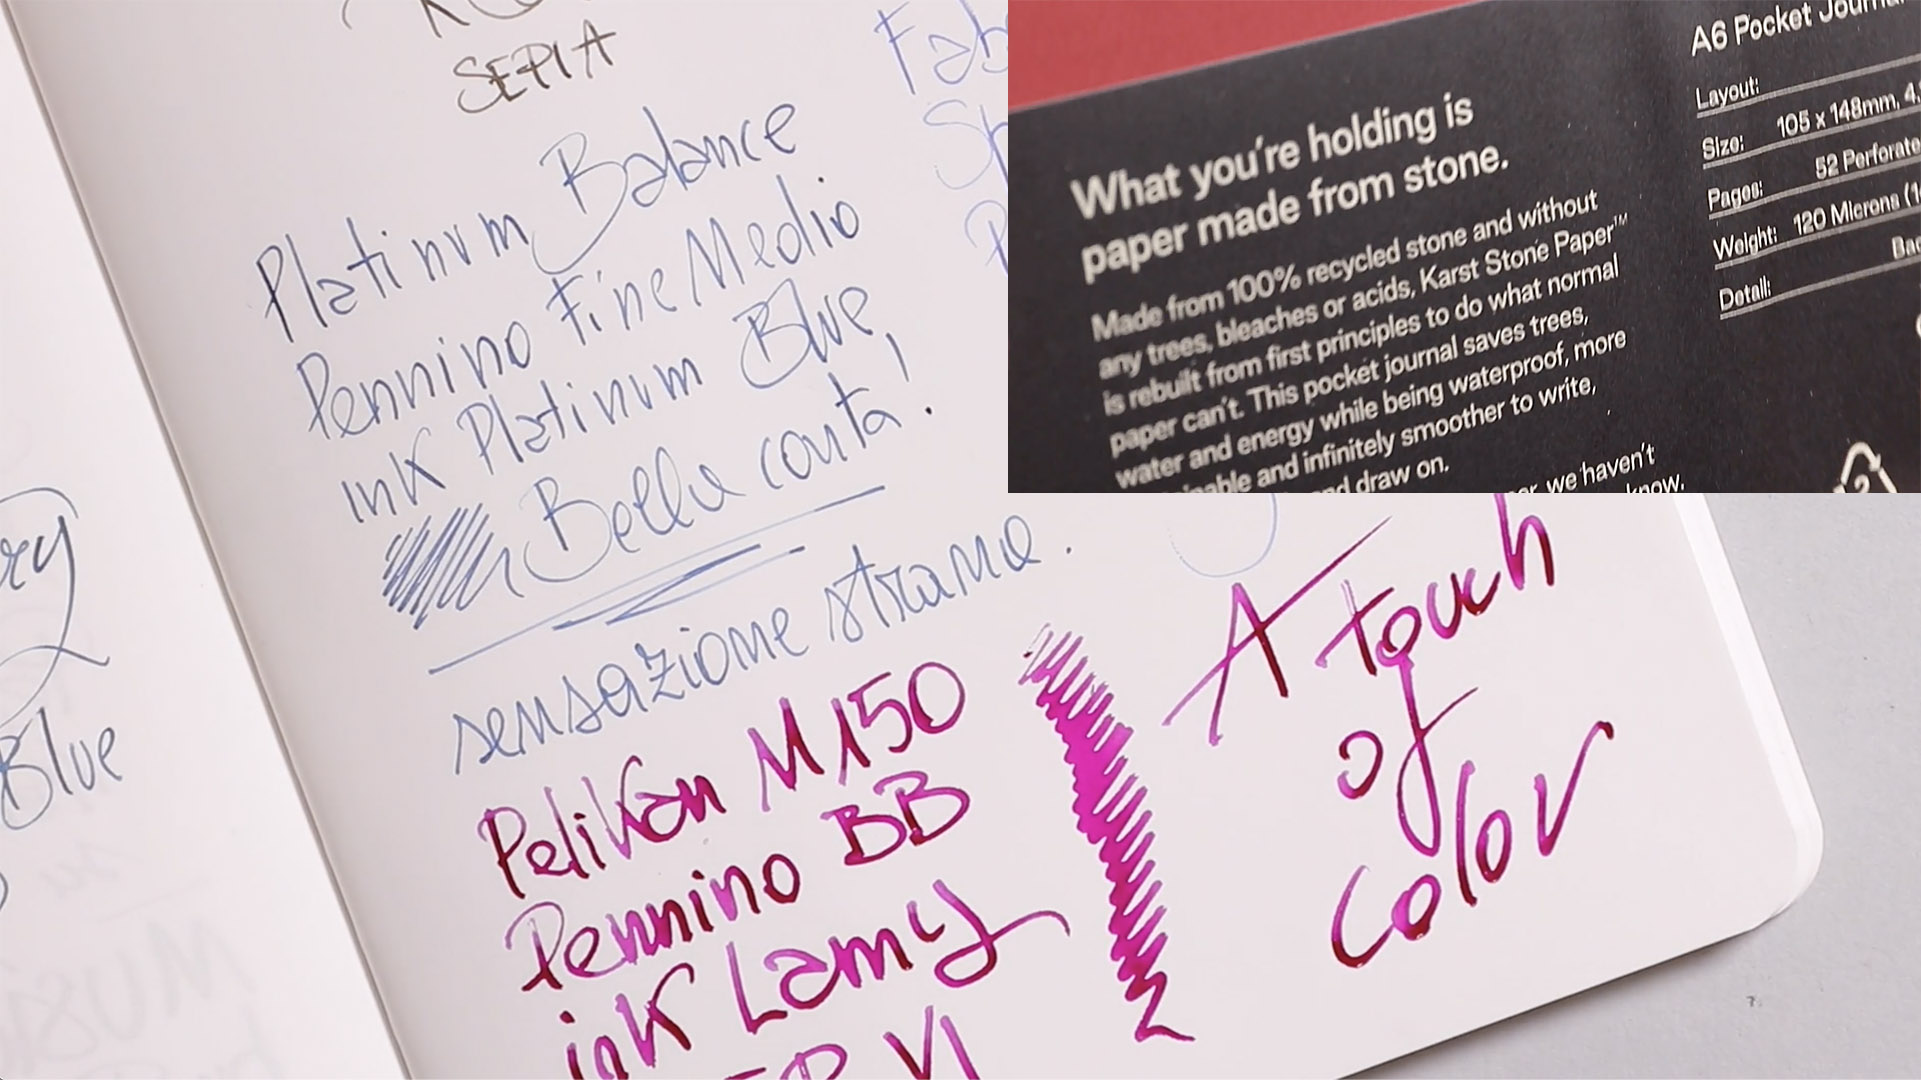 SEPIA
Platinum Balance
Pennino Fine Medio
ink Platinum Blue,
Bella conta!
sensazione strana.
Pelikan M150
Pennino BB
ink Lamy
A touch
of
color
Blue
What you're holding is
paper made from stone.
Made from 100% recycled stone and without
any trees, bleaches or acids, Karst Stone Paper™
is rebuilt from first principles to do what normal
paper can't. This pocket journal saves trees,
water and energy while being waterproof, more
and infinitely smoother to write,
draw on.
we haven't
know.
A6 Pocket
Layout:
Size: 105 x 148mm,
Pages: 52
Weight: 120 Microns
Detail: